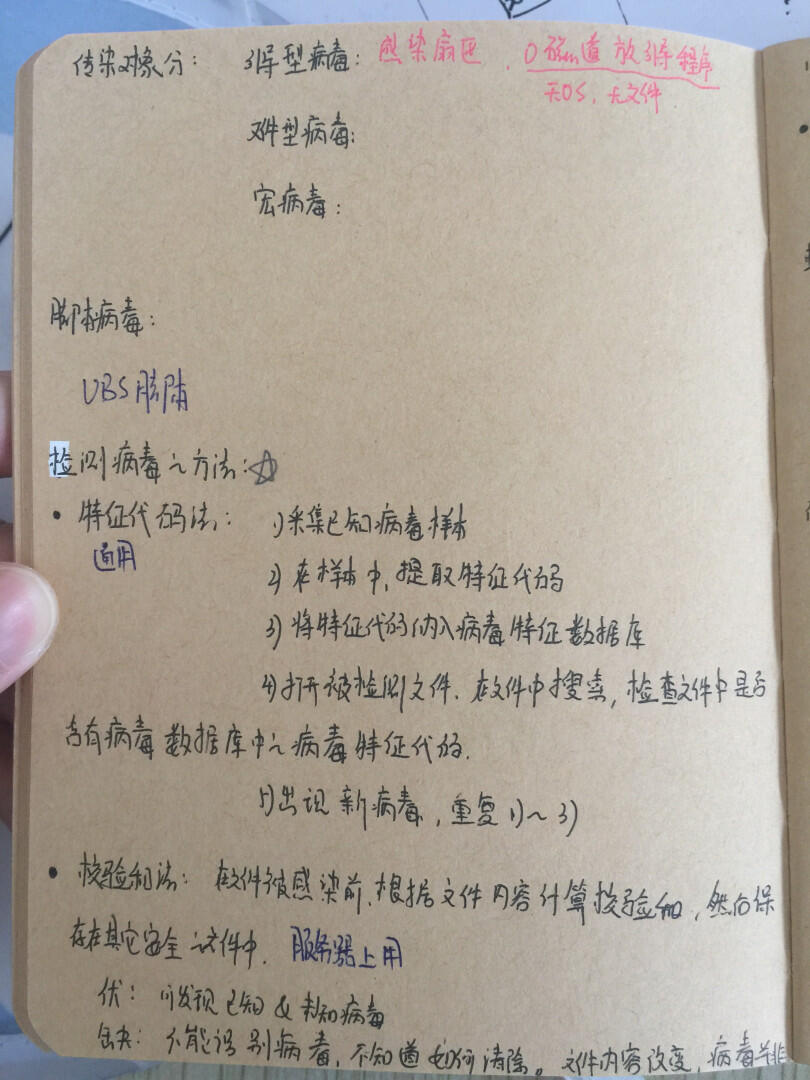 传染对象分： 引导型病毒：感染扇区，0磁道放引导程序
无OS，无文件
文件型病毒：
宏病毒：
脚本病毒：
VBS脚本
检测病毒之方法：☆
• 特征代码法： 1)采集已知病毒样本
通用
2) 在样本中，提取特征代码
3) 将特征代码纳入病毒特征数据库
4)打开被检测文件．在文件中搜索，检查文件中是否
含有病毒数据库中之病毒特征代码．
5)出现新病毒，重复1)～3)
• 校验和法：在文件被感染前．根据文件内容计算校验和，然后保
存在其它安全文件中． 服务器上用
优： 可发现已知&未知病毒
缺： 不能识别病毒，不知道如何清除。文件内容改变，病毒并非